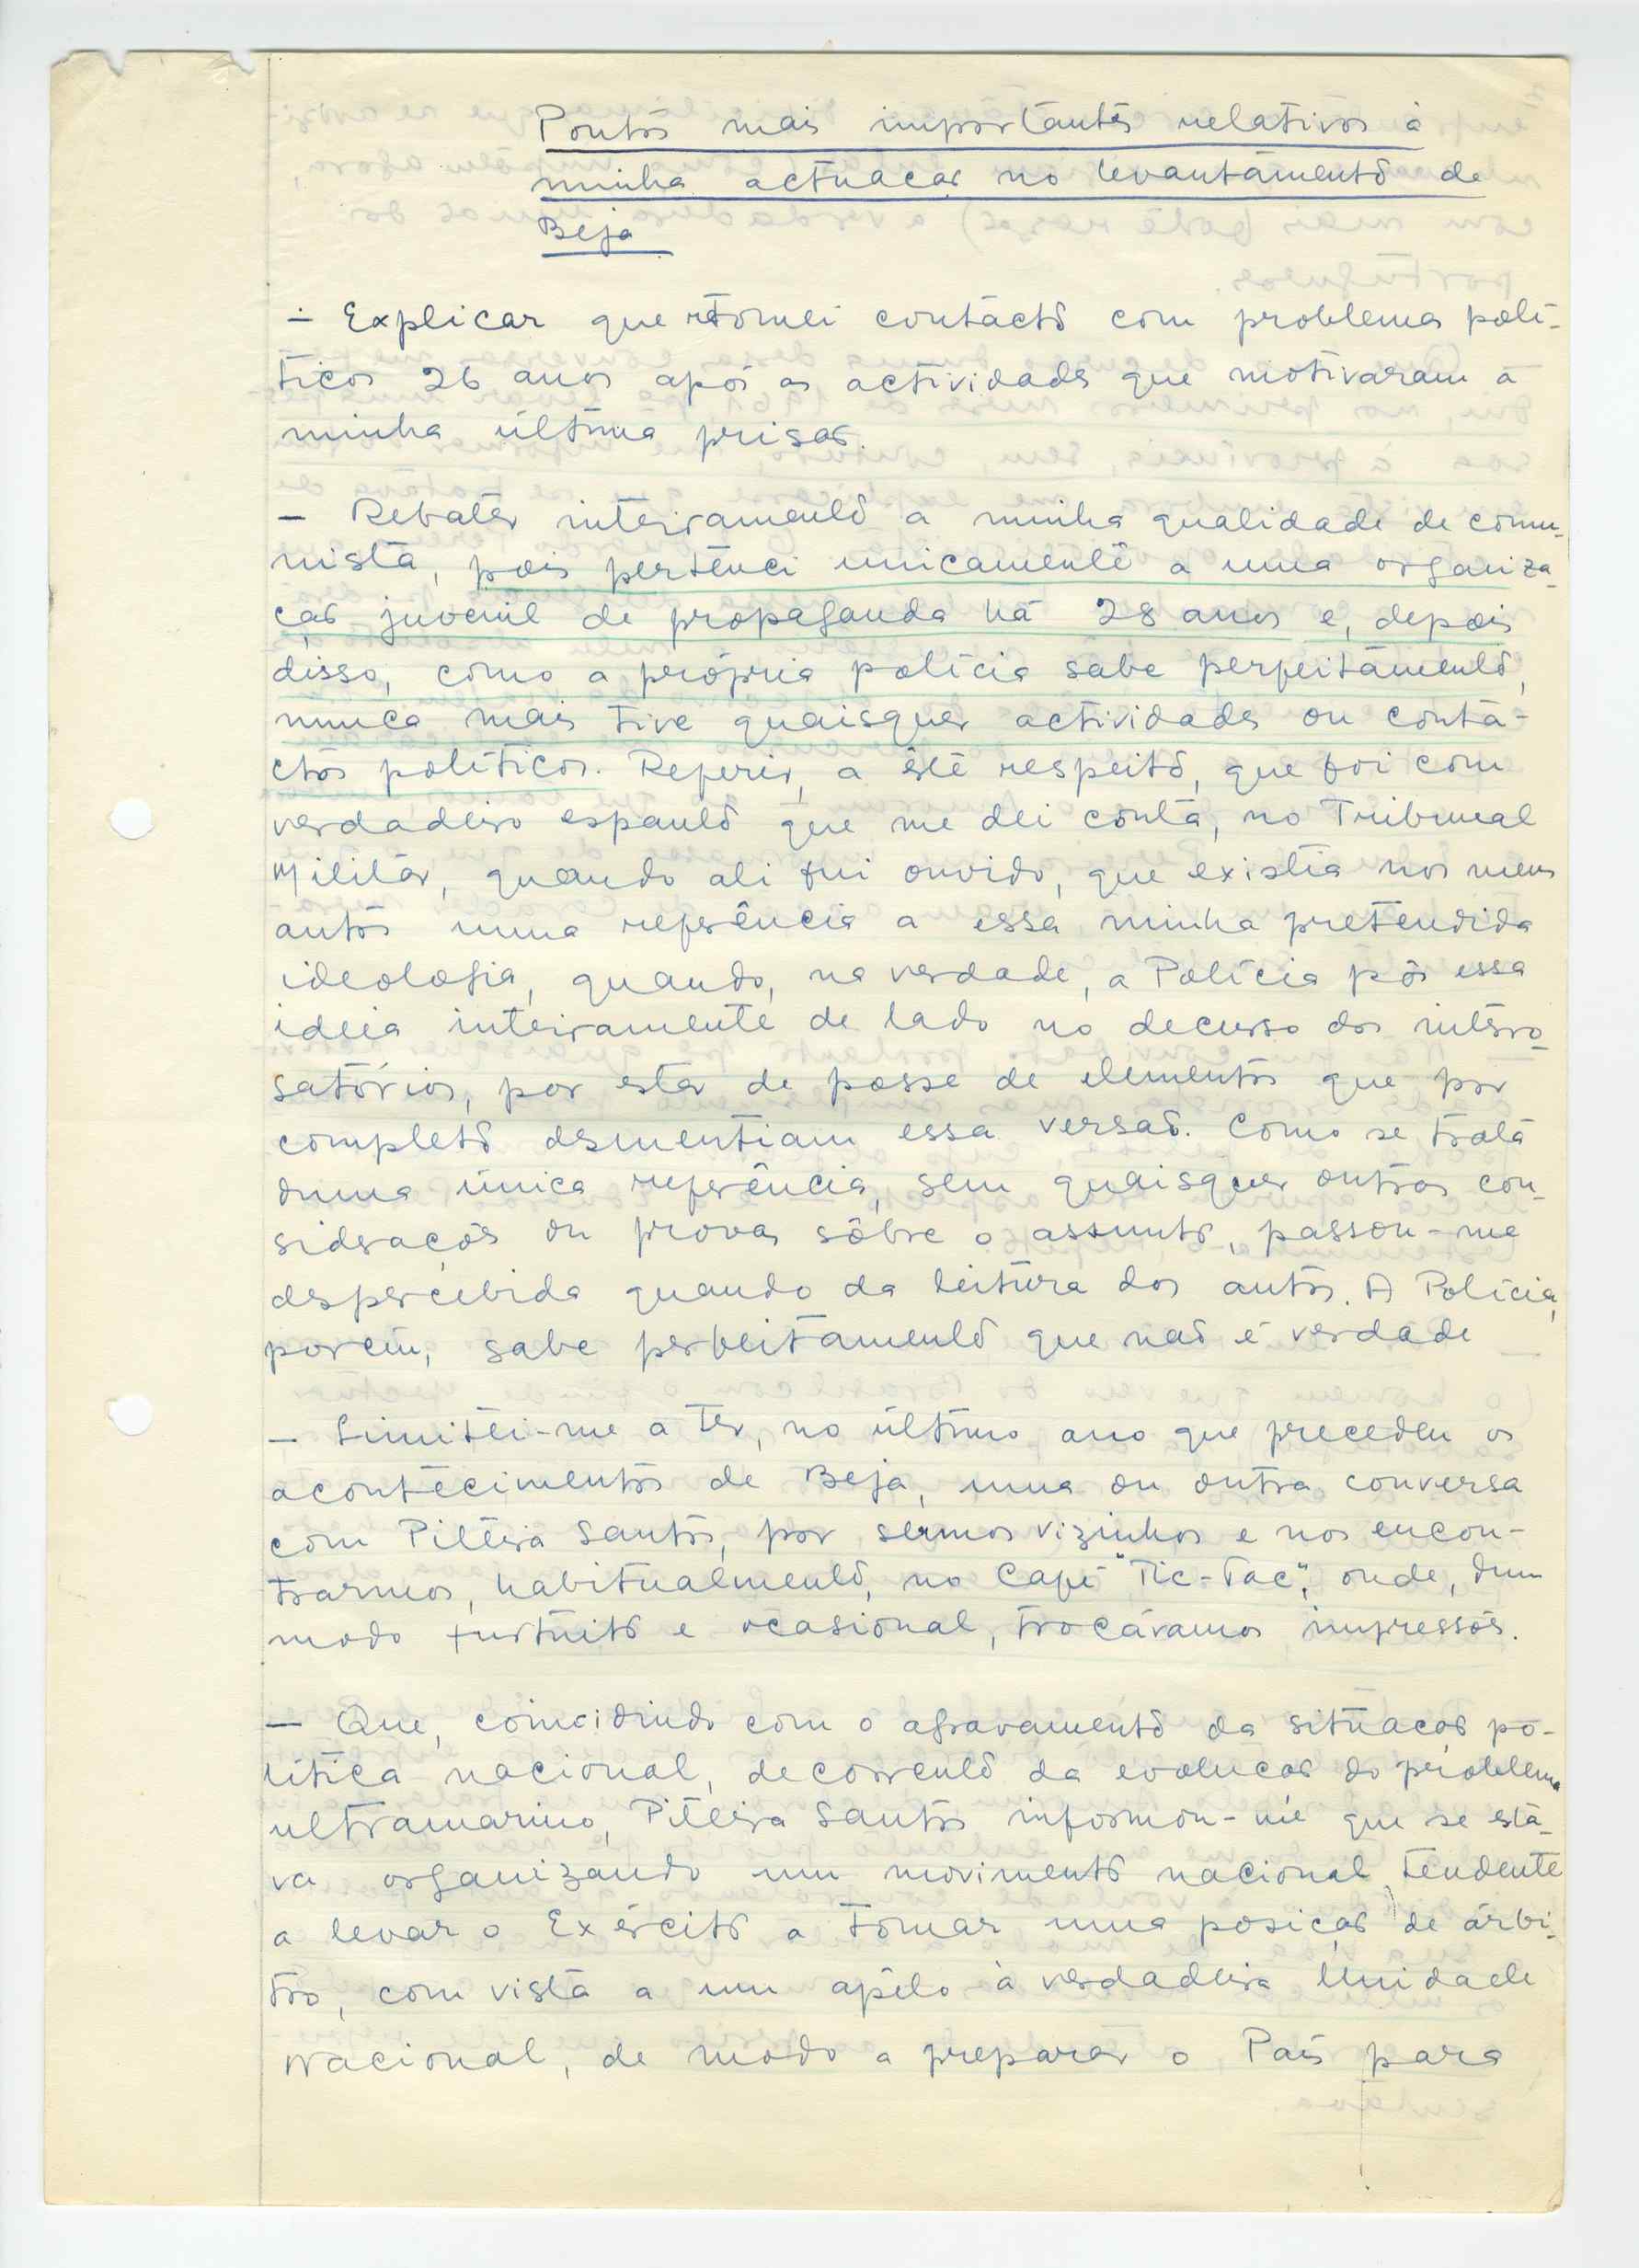 Pontos mais importantes relativos à
minha actuação no levantamento de
Beja
— Explicar que retomei contacto com problemas polí-
ticos 26 anos após as actividades que motivaram a
minha última prisão.
— Rebater inteiramente a minha qualidade de comu-
nista, pois pertenci unicamente a uma organiza-
ção juvenil de propaganda há 28 anos e, depois
disso, como a própria polícia sabe perfeitamente,
nunca mais tive quaisquer actividades ou contá-
ctos políticos. Referir, a êste respeito, que foi com
verdadeiro espanto que me dei conta, no Tribunal
Militar, quando ali fui ouvido, que existia nos meus
autos uma referência a essa minha pretendida
ideologia, quando, na verdade, a Polícia pôs essa
ideia inteiramente de lado no decurso dos interro-
gatórios, por estar de posse de elementos que por
completo desmentiam essa versão. Como se trata
duma única referência, sem quaisquer outras con-
siderações ou provas sôbre o assunto, passou-me
despercebida quando da leitura dos autos. A Polícia,
porém, sabe perfeitamente que não é verdade
— Limitei-me a ter, no último ano que precedeu os
acontecimentos de Beja, uma ou outra conversa
com Piteira Santos, por sermos vizinhos e nos encon-
trarmos, habitualmente, no Café "Tic-Tac", onde, dum
modo furtuito e ocasional, trocávamos impressões.
— Que, coincidindo com o agravamento da situação po-
lítica nacional, decorrente da evolução do problema
ultramarino, Piteira Santos informou-me que se esta-
va organizando um movimento nacional tendente
a levar o Exército a tomar uma posição de árbi-
tro, com vista a um apêlo à verdadeira Unidade
Nacional, de modo a preparar o País para